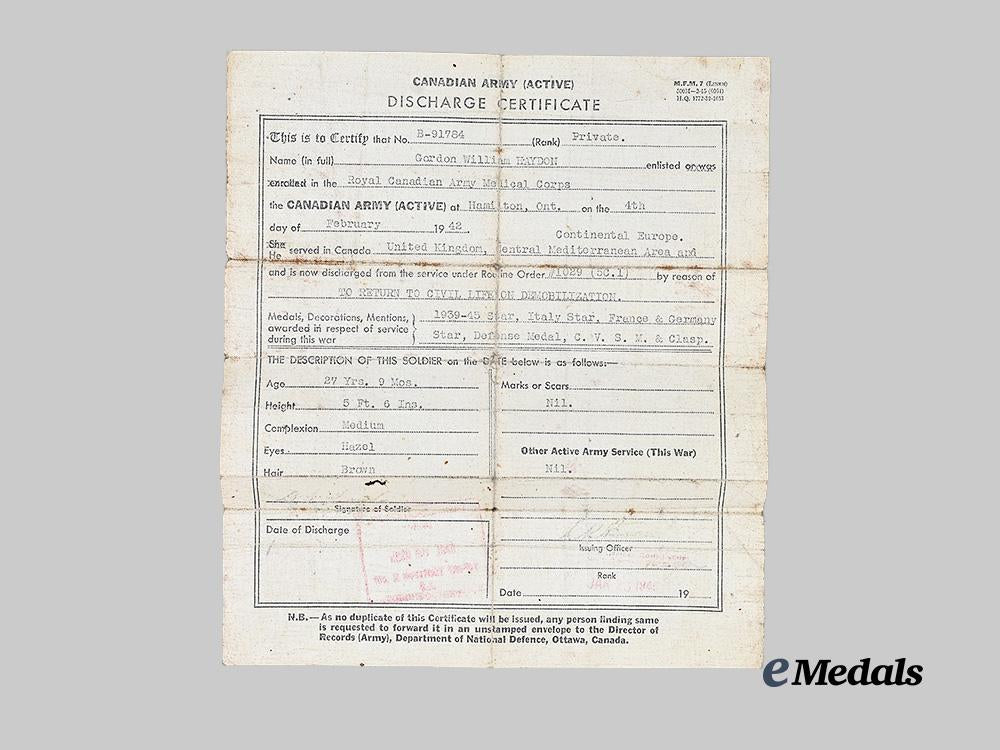 CANADIAN ARMY (ACTIVE)
DISCHARGE CERTIFICATE
M.F.M. 7
This is to Certify that No. B-91784 (Rank) Private.
Name (in full) Gordon William HAYDON enlisted or was
enrolled in the Royal Canadian Army Medical Corps
the CANADIAN ARMY (ACTIVE) at Hamilton, Ont. on the 4th
day of February 19 42
Continental Europe.
She
He served in Canada United Kingdom, Central Mediterranean Area and
and is now discharged from the service under Routine Order #1029 (5C.1) by reason of
TO RETURN TO CIVIL LIFE ON DEMOBILIZATION.
Medals, Decorations, Mentions, 1939-45 Star, Italy Star, France & Germany
awarded in respect of service
during this war Star, Defense Medal, C. V. S. M. & Clasp.
THE DESCRIPTION OF THIS SOLDIER on the DATE below is as follows:—
Age 27 Yrs. 9 Mos.
Height 5 Ft. 6 Ins.
Complexion Medium
Eyes Hazel
Hair Brown
Signature of Soldier
Date of Discharge
Marks or Scars
Nil.
Other Active Army Service (This War)
Nil.
Issuing Officer
Rank
JAN
Date 19
N.B.—As no duplicate of this Certificate will be issued, any person finding same
is requested to forward it in an unstamped envelope to the Director of
Records (Army), Department of National Defence, Ottawa, Canada.
eMedals